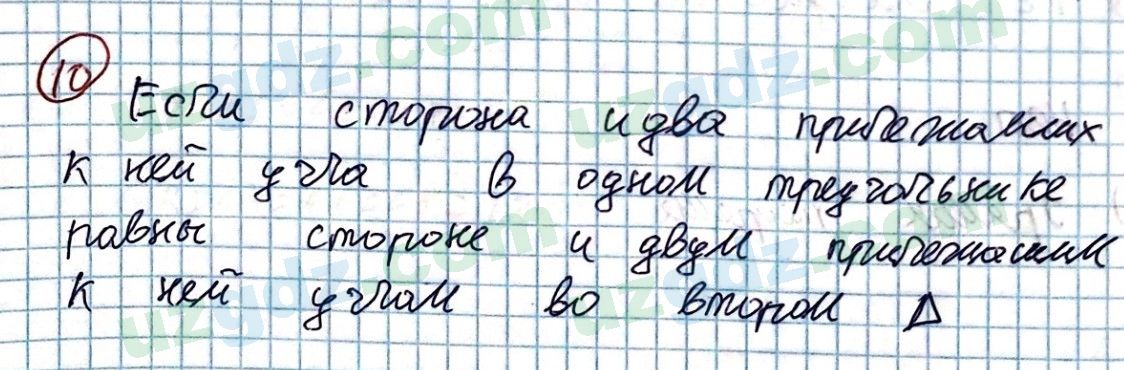 10
Если сторона и два прилежащих
к ней угла в одном треугольнике
равны стороне и двум прилежащим
к ней углам во втором Δ
uzgdz.com